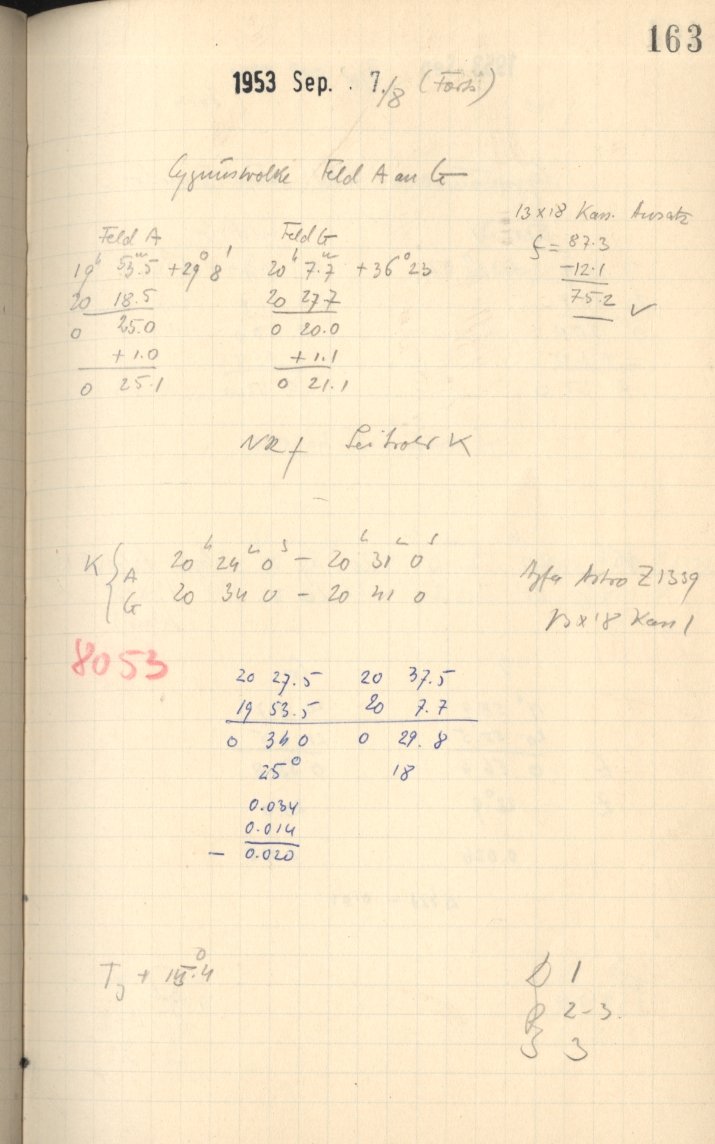 163
1953 Sep. 7./8 (Forts)
Cygnuswolke Feld A an G
13 x 18 Kass. Ansatz
Feld A Feld G
f = 87.3
19h 53.5m +29° 8' 20h 7.7m +36° 23
-12.1
20 18.5 20 27.7
75.2 ✓
0 25.0 0 20.0
+ 1.0 + 1.1
0 25.1 0 21.1
K
K { A 20h 24m 0s - 20h 31m 0s
G 20 34 0 - 20 41 0
Agfa Astro Z1339
13 x 18 Kass 1
8053
20 27.5 20 37.5
19 53.5 20 7.7
0 34 0 0 29.8
25° 18
0.034
0.014
- 0.020
+ 15°.4
D 1
2-3.
3